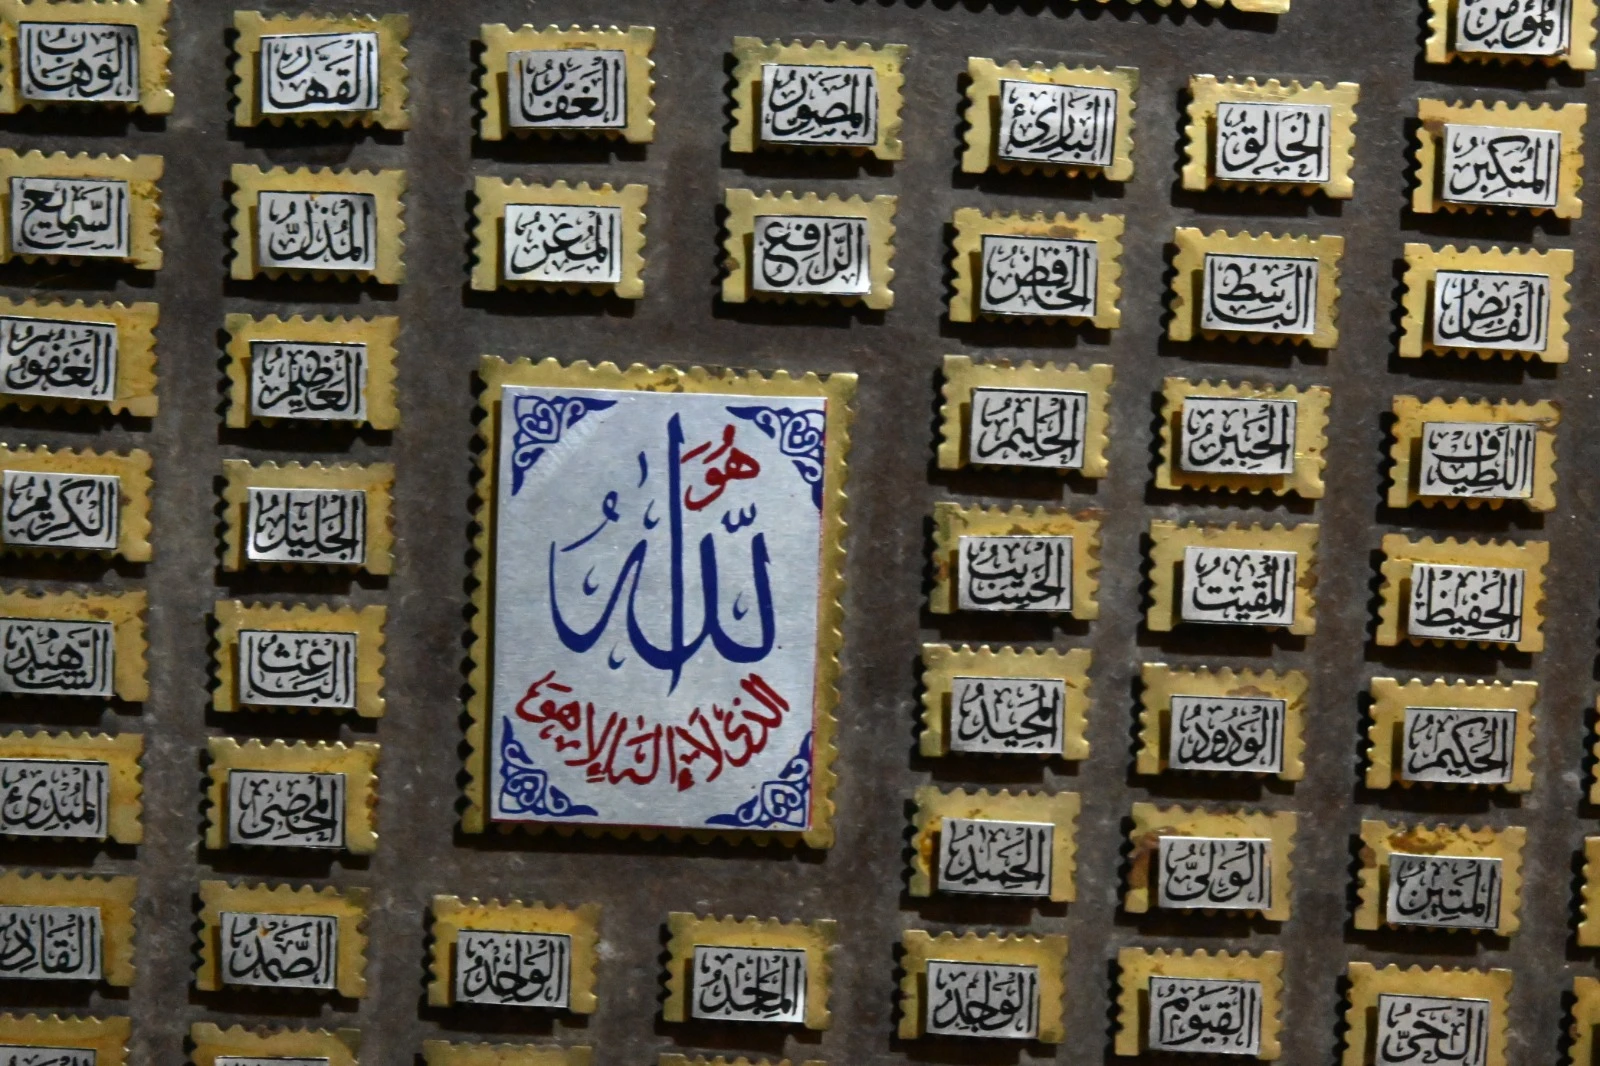 المؤمن
المتكبر
الخالق
البارئ
المصور
الغفار
القهار
الوهاب
القابض
الباسط
الخافض
الرافع
المعز
المذل
السميع
اللطيف
الخبير
الحليم
العظيم
الغفور
هو
الله
الذي لا إله إلا هو
الحفيظ
المقيت
الحسيب
الجليل
الكريم
الحكيم
الودود
المجيد
الباعث
الشهيد
المتين
الولي
الحميد
المحصي
المبدئ
الحي
القيوم
الواجد
الماجد
الواحد
الصمد
القادر